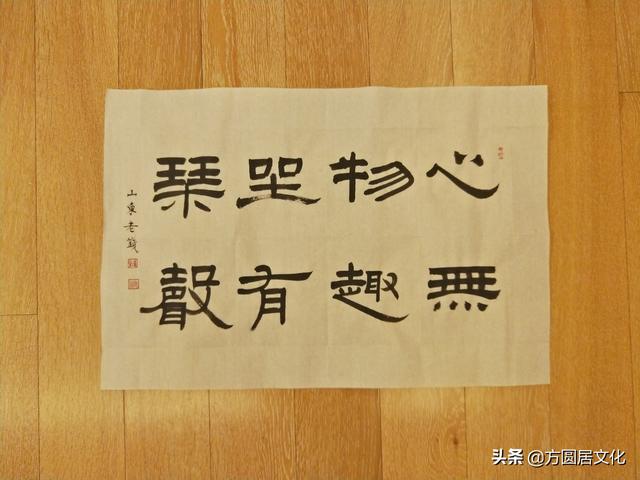 心無
物趣
坐有
琹聲
山東老
头条 @方圆居文化